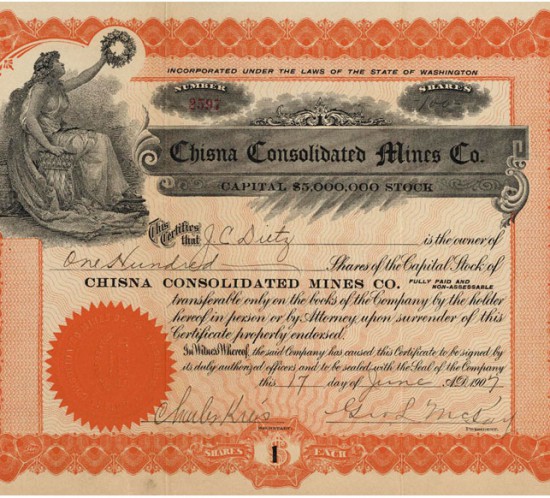 INCORPORATED UNDER THE LAWS OF THE STATE OF WASHINGTON
NUMBER
SHARES
3597
100
1
Chisna Consolidated Mines Co.
CAPITAL $5,000,000 STOCK
This Certifies that J. C. Dietz is the owner of
One Hundred Shares of the Capital Stock of
CHISNA CONSOLIDATED MINES CO. FULLY PAID AND NON-ASSESSABLE
transferable only on the books of the Company by the holder
hereof in person or by Attorney, upon surrender of this
Certificate properly endorsed.
In Witness Whereof, the said Company has caused this Certificate to be signed by
its duly authorized officers and to be sealed with the Seal of the Company
this 17 day of June A.D. 1907
Charles
SECRETARY.
PRESIDENT.
SHARES $1 EACH